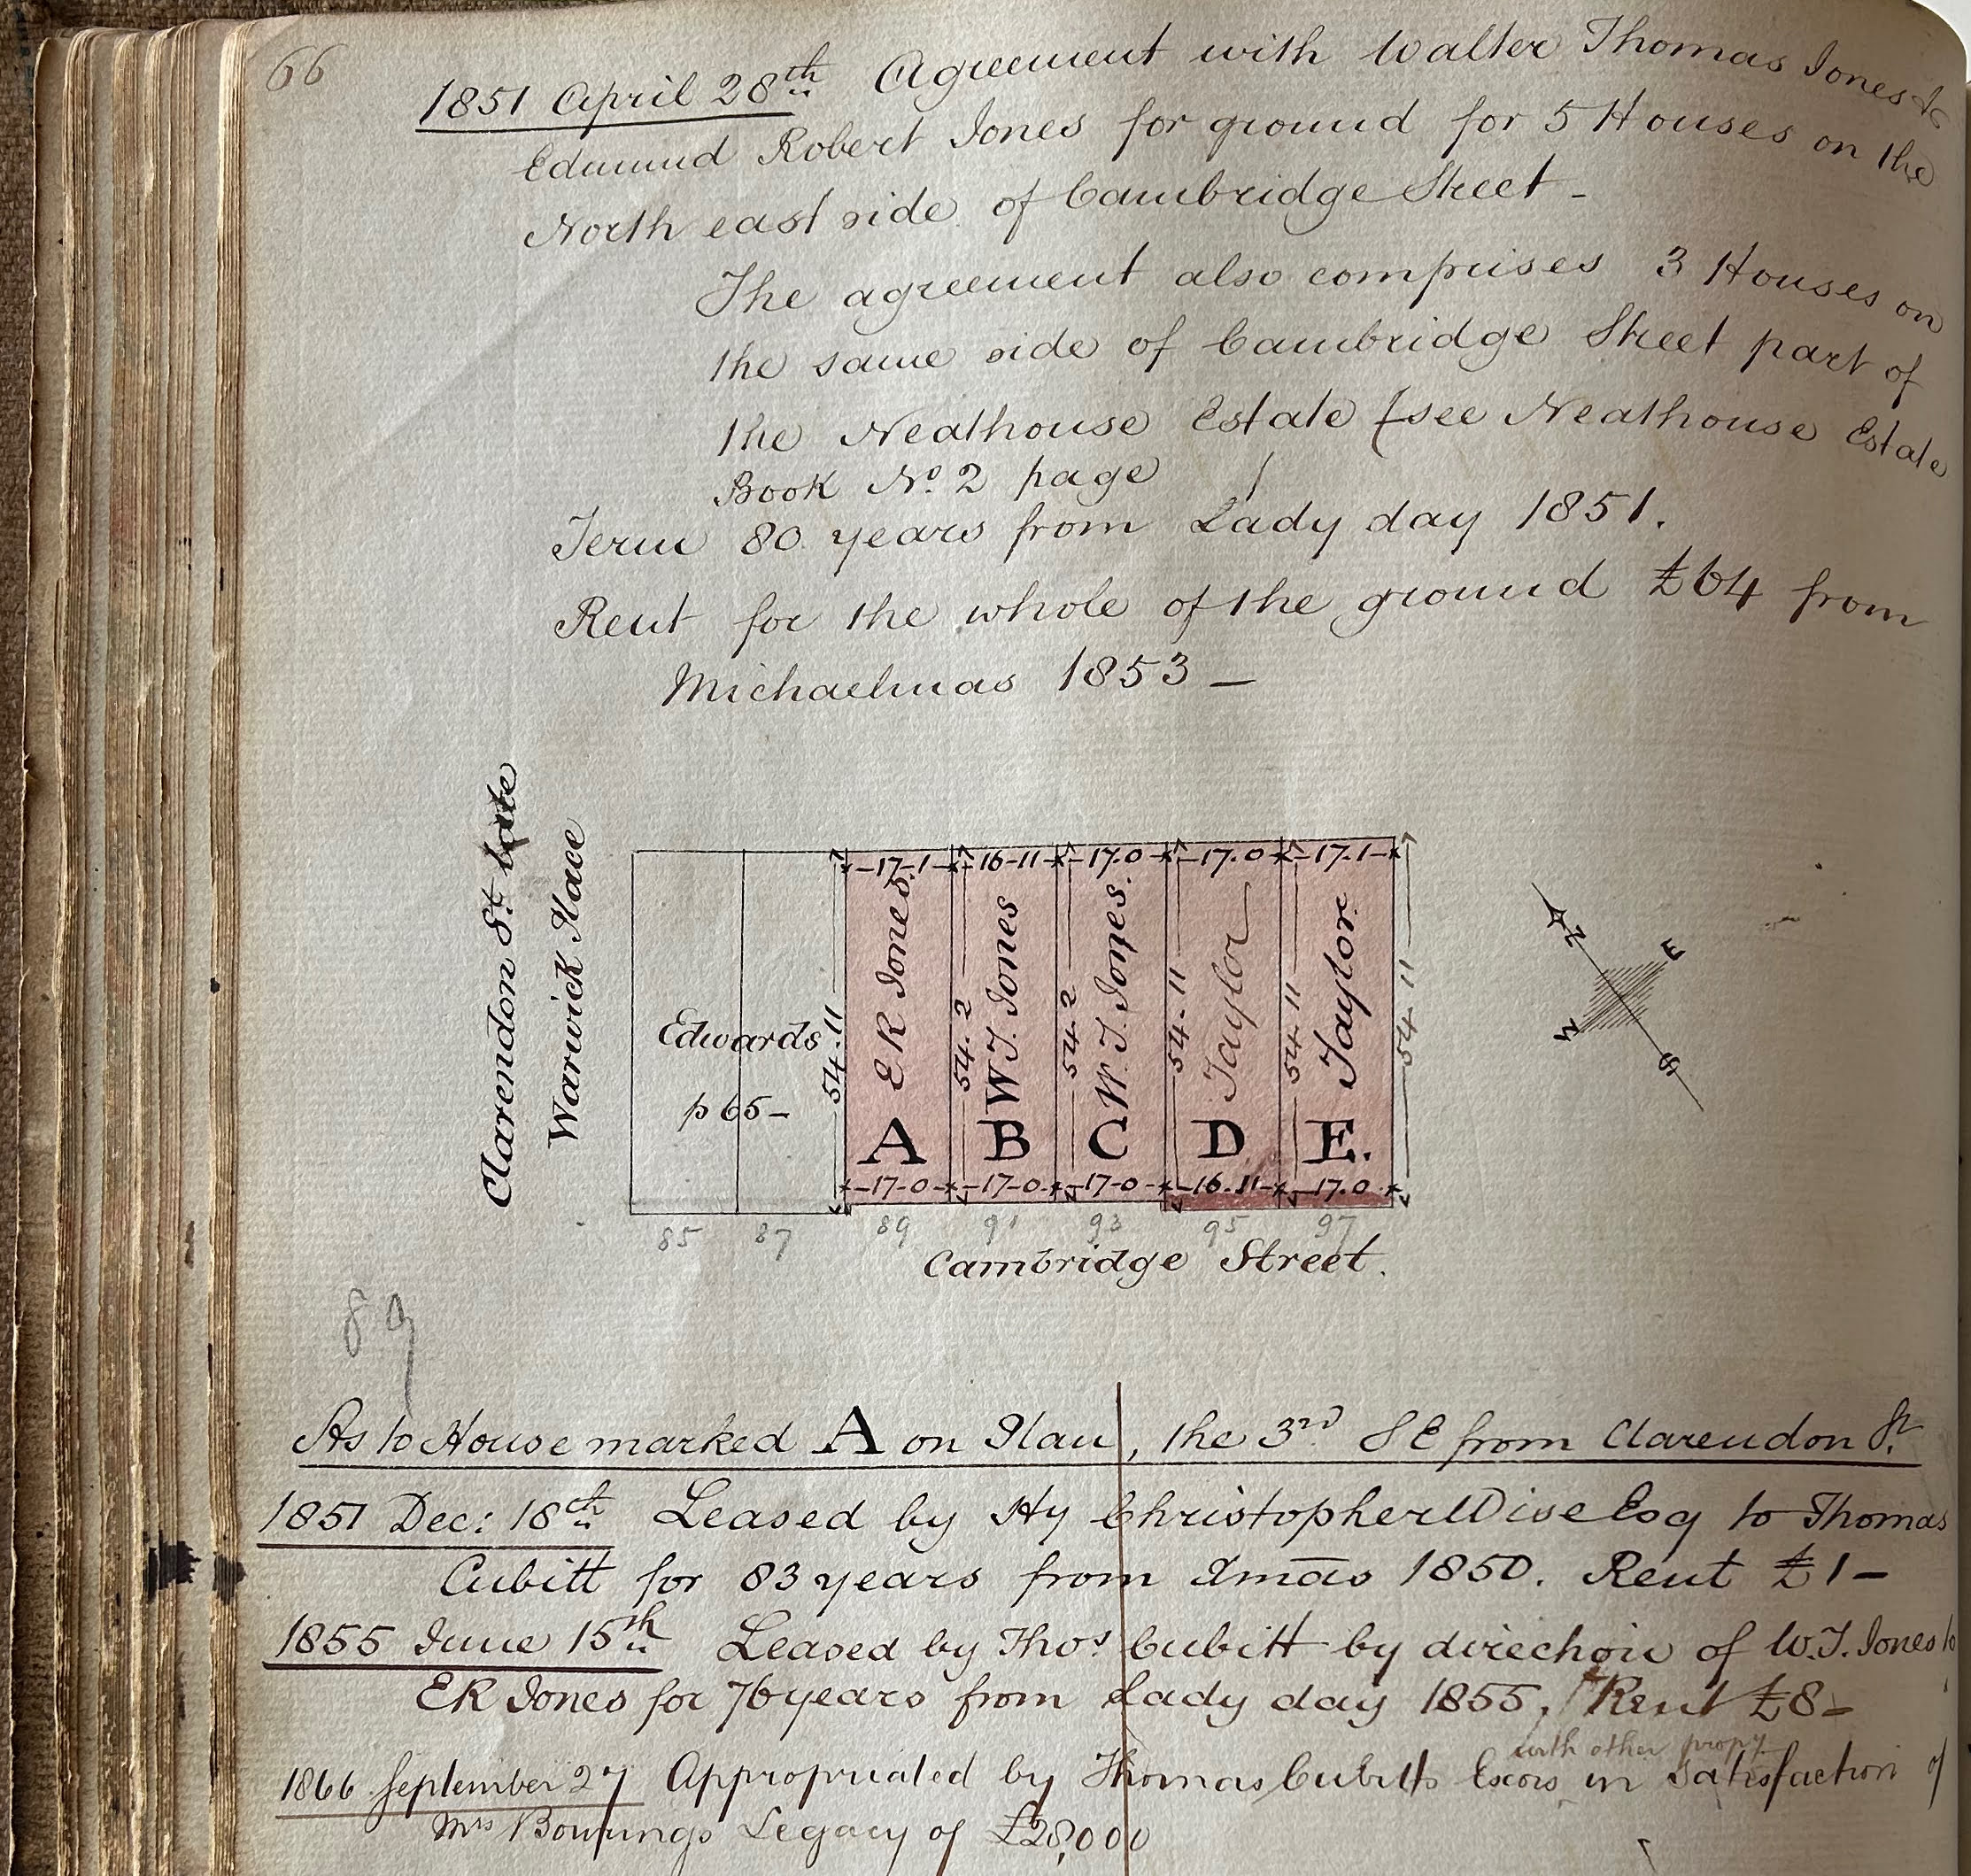 66
1851 April 28th Agreement with Walter Thomas Jones &
Edmund Robert Jones for ground for 5 Houses on the
North east side of Cambridge Street -
The agreement also comprises 3 Houses on
the same side of Cambridge Street part of
the Neathouse Estate (see Neathouse Estate
Book No. 2 page )
Term 80 years from Lady day 1851.
Rent for the whole of the ground £64 from
Michaelmas 1853 -
Clarendon St. late
Warwick Place
Edwards
p 65-
54.11
-17-1- 16-11- -17.0- -17.0- -17.1-
E R Jones.
54.2
W T. Jones
54.2
W. T. Jones.
54.11
Taylor
54.11
Taylor.
54 11
A B C D E.
-17-0- -17-0- -17-0- -16.11- -17.0
85 87 89 91 93 95 97
Cambridge Street.
N E W S
89
As to House marked A on Plan, the 3rd S E from Clarendon St.
1851 Dec: 18th Leased by Hy Christopher Wise Esq to Thomas
Cubitt for 83 years from Xmas 1850. Rent £1-
1855 June 15th Leased by Thos Cubitt by direction of W. T. Jones to
E R Jones for 76 years from Lady day 1855, Rent £8-
with other propy
1866 September 27 Appropriated by Thomas Cubitts Exors in Satisfaction of
Mrs Legacy of £20,000